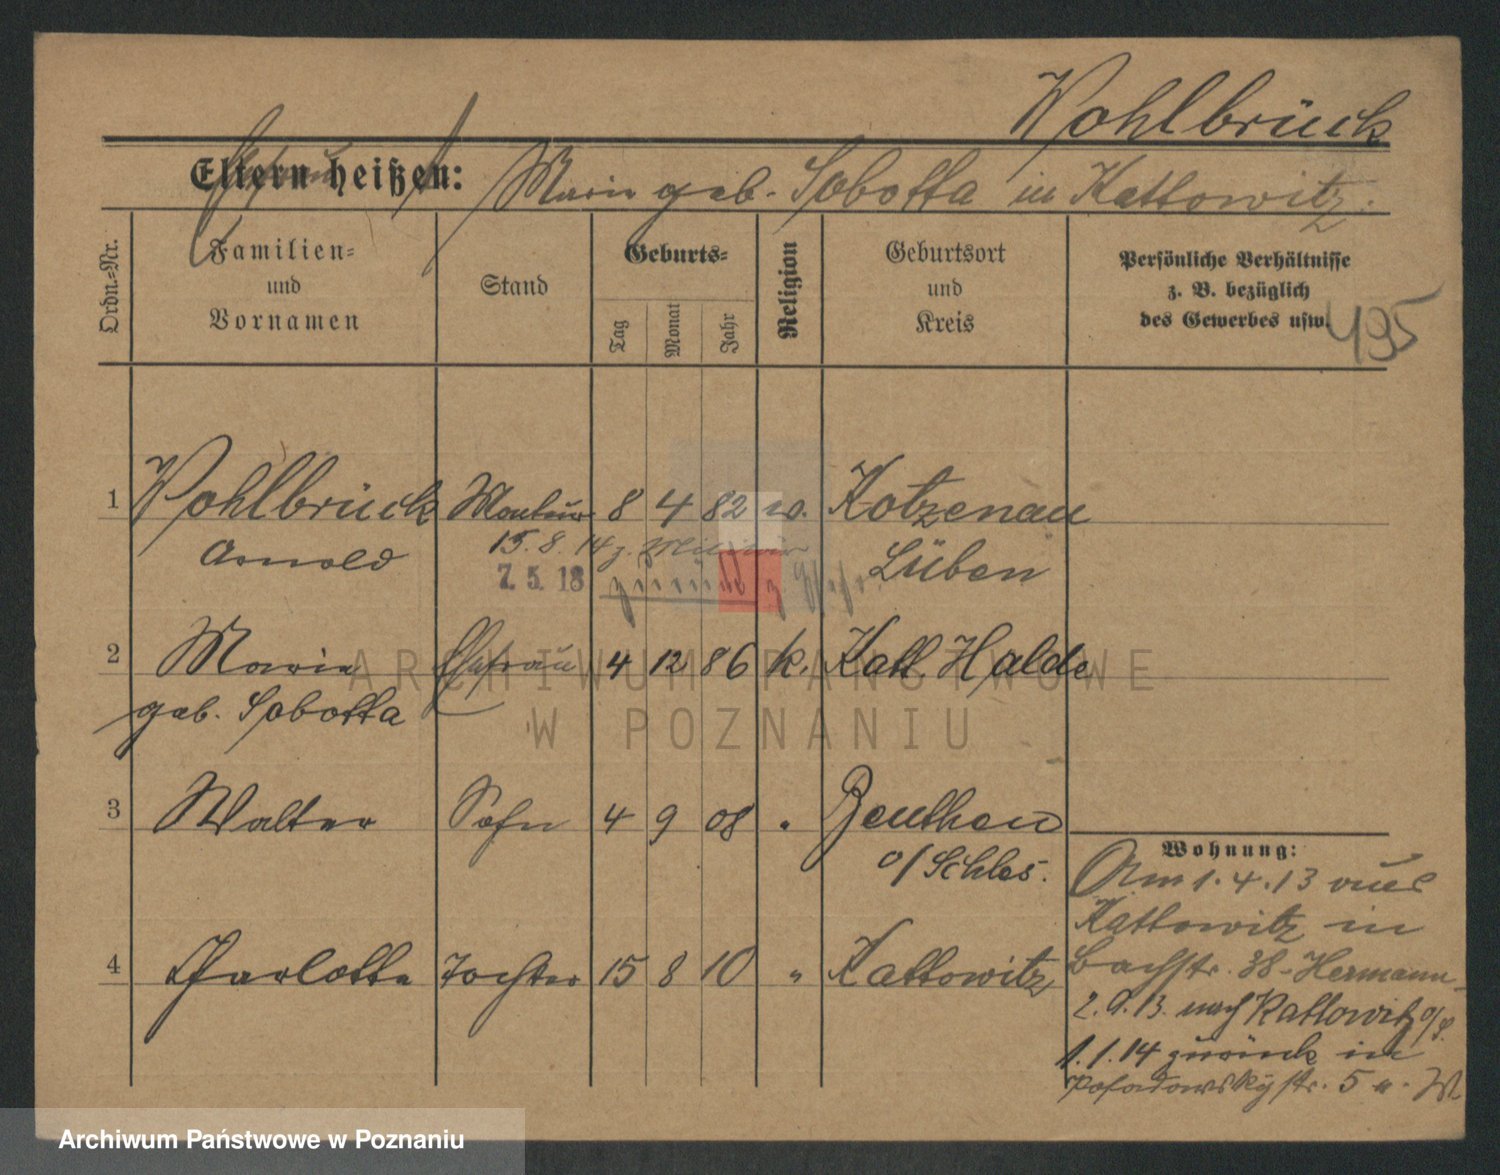 Wohlbrück
Eltern heißen: Marie geb. Sobotta in Kattowitz.
Ordn.-Nr.
Familien-
und
Vornamen
Stand
Geburts-
Tag
Monat
Jahr
Religion
Geburtsort
und
Kreis
Persönliche Verhältnisse
z. B. bezüglich
des Gewerbes usw.
495
1 Wohlbrück Monteur 8 4 82 ev. Kotzenau
Arnold
15. 8. 14 z. Militär
Lüben
7. 5. 18 zurück
2 Marie Ehefrau 4 12 86 k. Katt. Halde
geb. Sobotta
3 Walter Sohn 4 9 08 " Beuthen
o/Schles.
4 Charlotte Tochter 15 8 10 " Kattowitz
Wohnung:
Am 1.4.13 aus
Kattowitz in
Bachstr. 38 - Hermann
2. 9. 13. nach Kattowitz o/S.
1. 1. 14 zurück in
Posadowskystr. 5 a. W.
ARCHIWUM PAŃSTWOWE
W POZNANIU
Archiwum Państwowe w Poznaniu